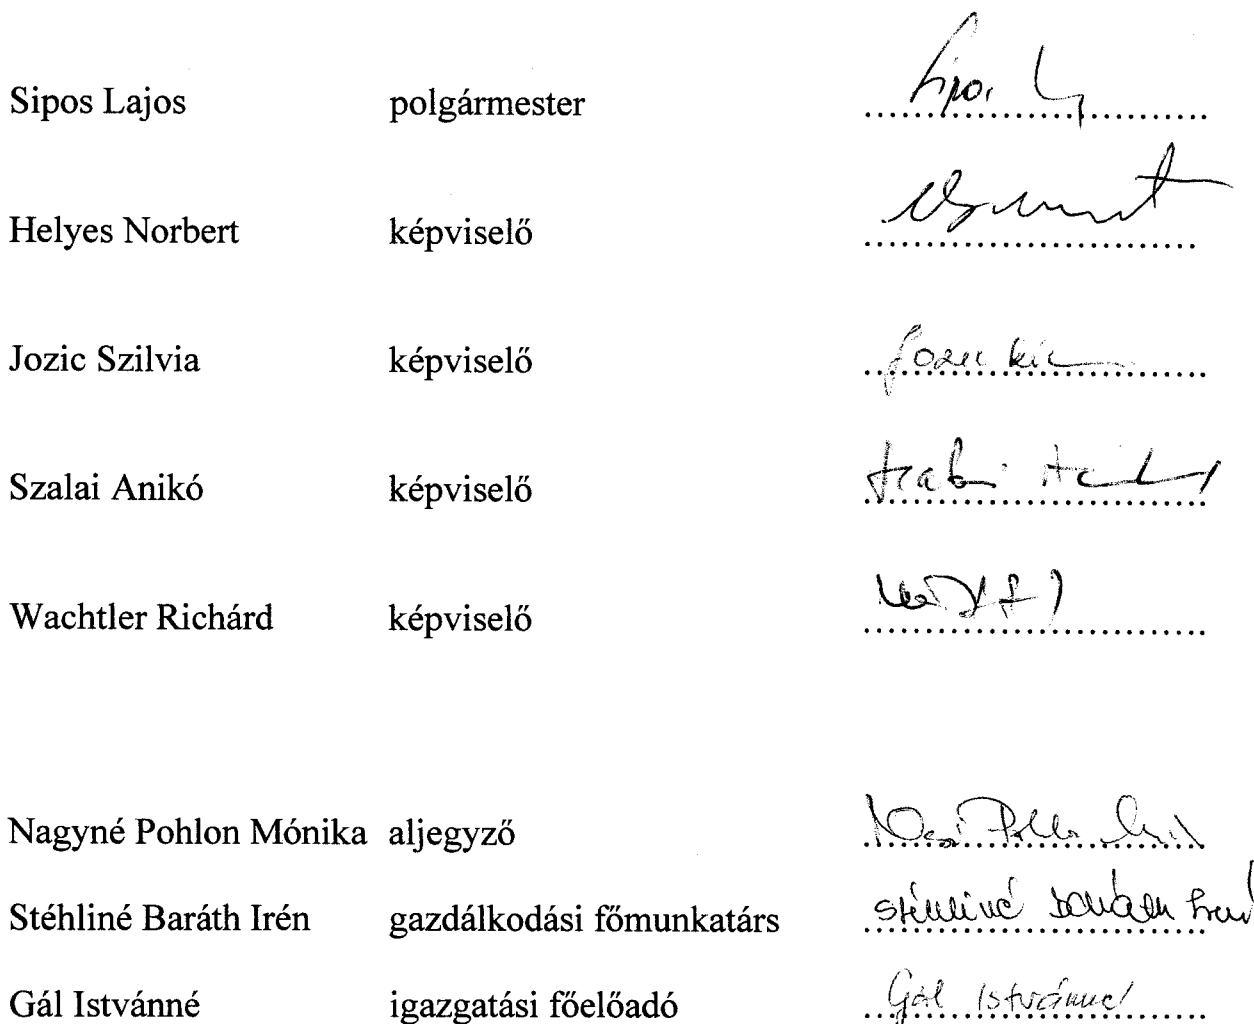 Sipos Lajos polgármester Sipos L
Helyes Norbert képviselő
Jozic Szilvia képviselő
Szalai Anikó képviselő
Wachtler Richárd képviselő
Nagyné Pohlon Mónika aljegyző
Stéhliné Baráth Irén gazdálkodási főmunkatárs Stéhliné Baráth Irén
Gál Istvánné igazgatási főelőadó Gál Istvánné